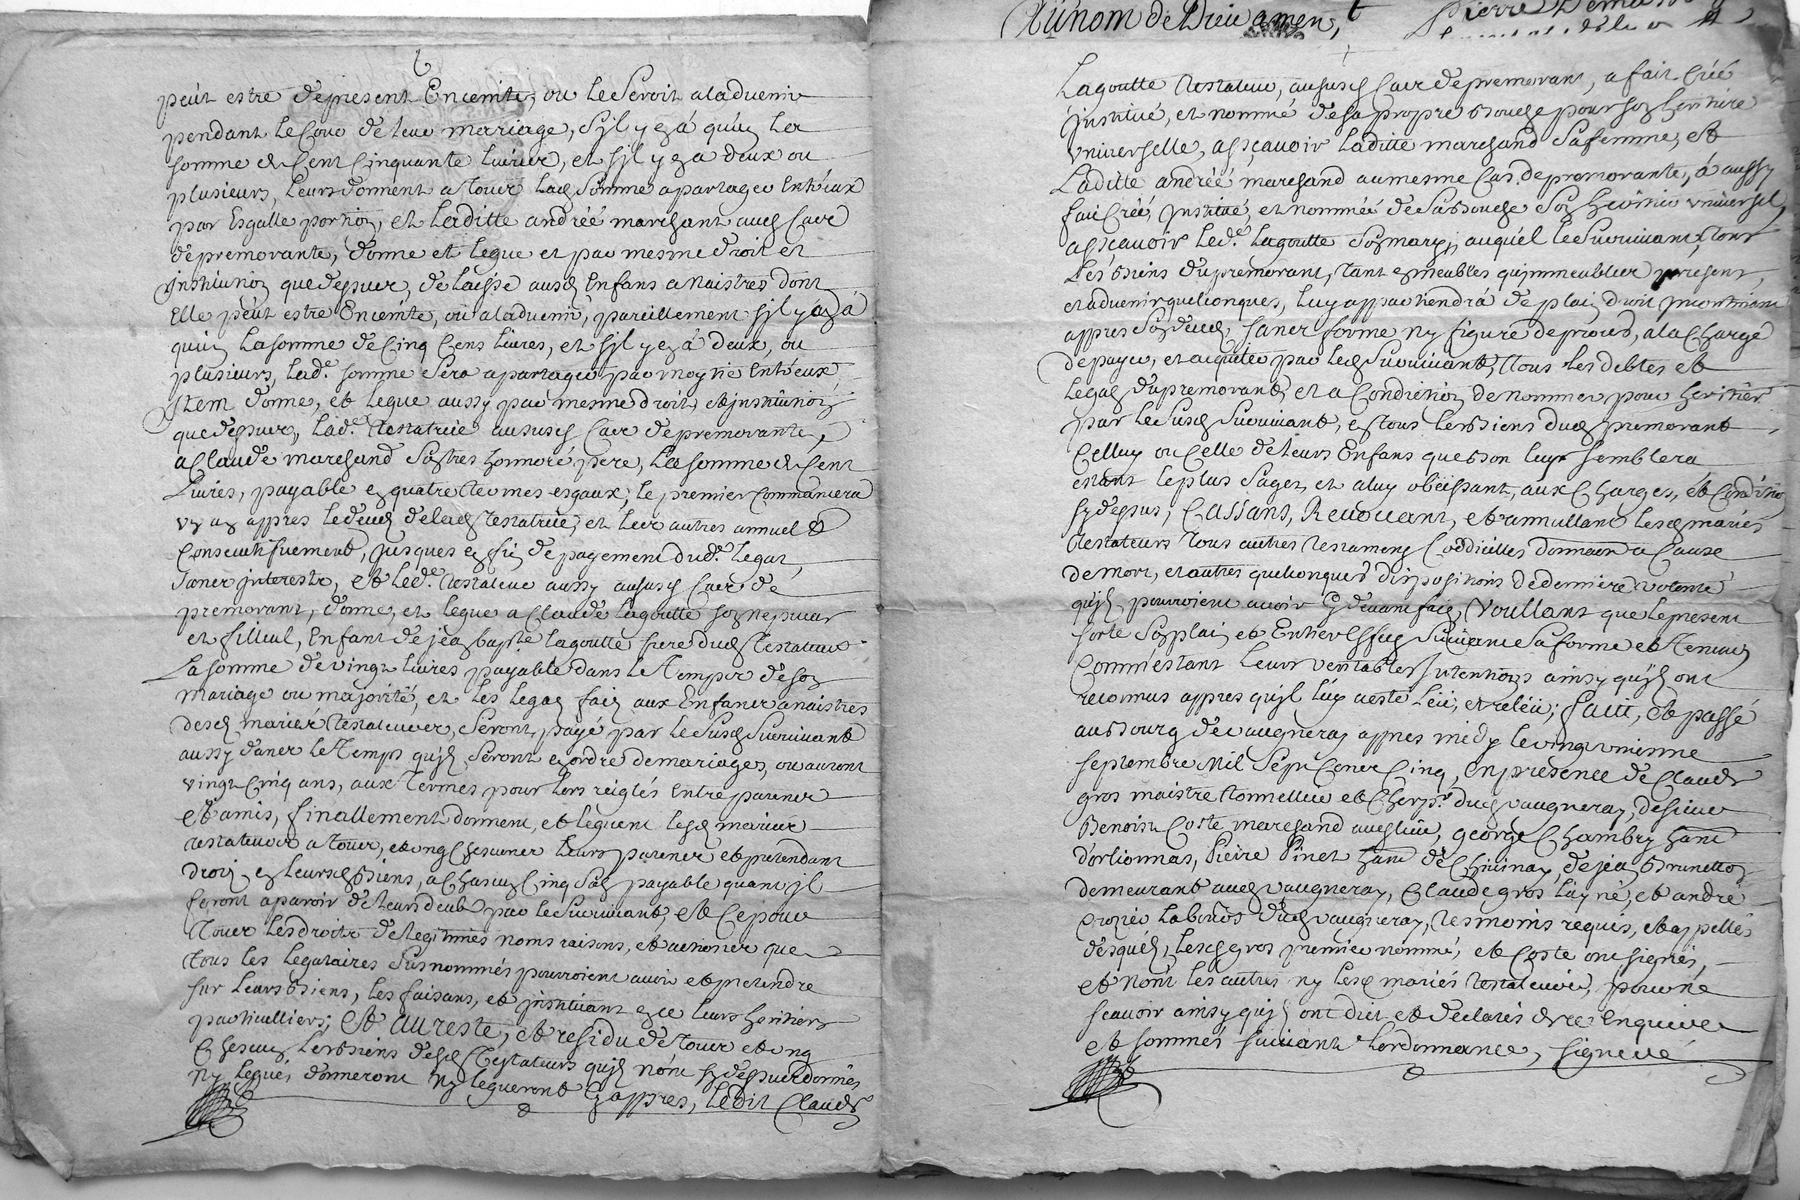 peut estre de present Enceinte, ou le seroit a ladvenir
pendant le Cour de leur mariage, s'il y en a qu'un la
somme de Cent Cinquante livres, et s'il y en a deux ou
plusieurs, leurs donnent a tous lad somme a partager Entreux
par Esgalle portion, et Laditte andréé marchant aud Cas
de premorante, donne et legue et par mesme droit et
institution que dessus, delaisse ausd Enfans a naistres dont
Elle peut estre Enceinte, ou a ladvenir, pareillement s'il y en a
qu'un la somme de Cinq Cens livres, et s'il y en a deux, ou
plusieurs, lad.e somme sera a partager par moytié Entreux
Item donne, et legue aussy par mesme droit, et institution
que dessus, lad.e testatrice aususd Cas de premorante,
a Claude marchand son tres honnoré pere, la somme de Cent
Livres, payable en quatre termes esgaux, le premier Commancera
un an appres le deces de lad testatrice, et les autres annuel et
Consecutifvement, jusques en fin de payement dud.e legat,
sans interests, et led.e testateur aussy aususd Cas de
premorant, donne, et legue a Claude Lagoutte son nepveur
et filleul, Enfant de jean baptiste lagoutte frere dud testateur
La somme de vingt livres payable dans le temps de son
mariage ou majorité, et les legas faits aux Enfans a naistres
desd mariés testateurs, seront payé par le susd survivant
aussy dans le temps qu'ils seront en ordre de mariage, ou auront
vingt Cinq ans, aux termes pour lors reiglés Entre parens
et amis, finallement donnent, et leguent lesd mariés
testateurs a tous, et ung Chescuns leurs parens et pretendant
droit en leursd biens, a Chascun Cinq sols payable quant il
seront aparoir de leurs deub par le survivant, et Ce pour
tous les droits de legitimes noms raisons, et actions que
tous les legataires susnommés pourroient avoir et pretendre
sur leurs biens, les faisans, et instituant en ce leurs heritiers
particulliers; et au reste, et residu de tous et ung
Chescun les biens desd testateurs qu'ils n'ont sy dessus donnés
ny legués, donneront ny legueront Cy appres, ledit Claude
Au nom de Dieu amen,
Pierre
Lagoutte testateur, aususd Cas de premorant, a fait Créé
institué, et nommé de sa propre bouche pour son heritiere
universelle, asçavoir laditte marchand sa femme, et
Laditte andréé marchand au mesme Cas de premorante, a aussy
fait Créé, institué, et nommée de sa bouche son heritier universel,
asçavoir led.e lagoutte son mary, auquel le survivant, tous
les biens du premorant, tant en meubles qu'immeubles presens,
et advenir quelconques, luy appartiendra de plain droit incontinant
appres son deces, sans forme ny figure de proces, a la Charge
de payer, et aquiter par led survivant, tous les debtes et
legas du premorant, et a Condition de nommer pour heritier
par le susd survivant, en tous les biens dud premorant
Celluy ou Celle de leurs Enfans que bon luy semblera
estant le plus sage, et a luy obeissant, aux Charges, et Conditions
sy dessus, Cassans, Revouant, et annullant lesd mariés
testateurs tous autres testamens Coddicilles donnation a Cause
de mort, et autres quelconques dispositions de derniere volonté
qu'ils pourroient avoir Cy devant fait, Voullant que le present
sorte son plain, et Entier Effet suivant sa forme et teneur
Comm'estant leurs veritables Intentions ainsy qu'ils ont
reconnus appres qu'il luy a esté leu, et releu; fait, et passé
au bourg de vaugneray appres midy le vingt uniesme
septembre Mil Sept Cens Cinq, en presence de Claude
gros maistre tonnellier et Cherp.r dud vaugneray, de sieur
Benoist Coste marchand aud lieu, george Chambry hant
d'orlionnas, Pierre Pinet hant de Chivinay, de jean Brunetton
demeurant aud vaugneray, Claude gros layné, et andré
laboür dud vaugneray, tesmoins requis, et appellés
desquels, lesd gros premier nommé, et Coste ont signés,
et non les autres ny lesd mariés testateurs, pour ne
scavoir ainsy qu'ils ont dit et declarés de ce Enquis
et sommés suivant l'ordonnance, signé